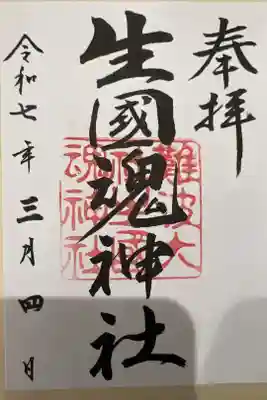 奉拝
生國魂神社
難波大
社生國
魂神社
令和七年三月四日